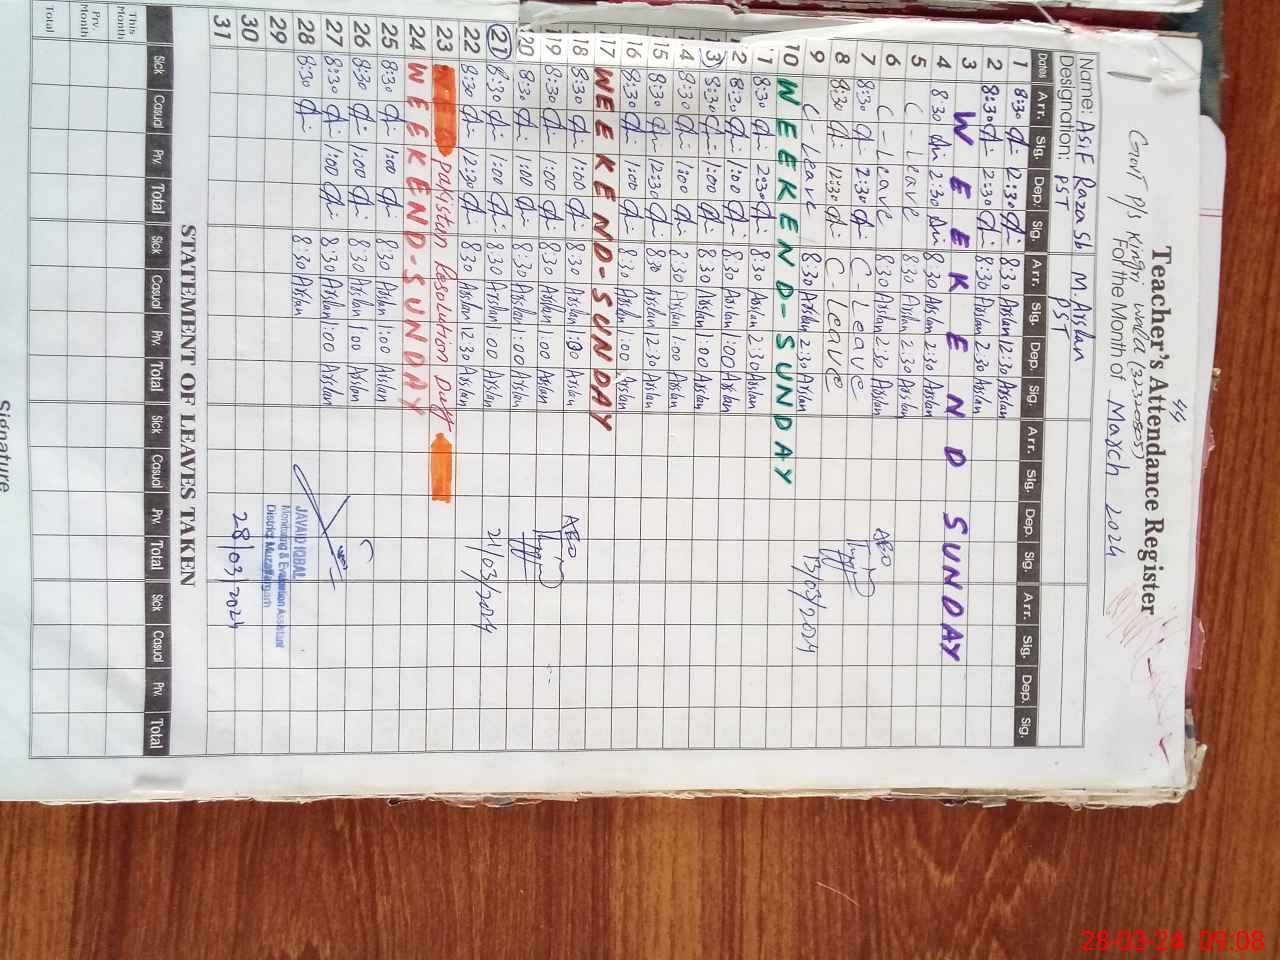 44
Teacher's Attendance Register
Govt P/S Kinjir walla (32320505)
For the Month of March 2024
Name: Asif Raza Sb M. Arslan
Designation: PST PST
Dates Arr. Sig. Dep: Sig. Arr. Sig. Dep. Sig. Arr. Sig. Dep. Sig. Arr. Sig. Dep. Sig.
1 8:30 12:30 8:30 Arslan 12:30 Arslan
2 8:30 2:30 8:30 Arslan 2:30 Arslan
3 WEEKEND SUNDAY
4 8:30 2:30 8:30 Arslan 2:30 Arslan
5 C - Leave 8:30 Arslan 2:30 Arslan
6 C - Leave 8:30 Arslan 2:30 Arslan
7 8:30 2:30 C - Leave
8 8:30 12:30 C - Leave
9 C - Leave 8:30 Arslan 2:30 Arslan
13/03/2024
10 WEEKEND - SUNDAY
11 8:30 2:30 8:30 Arslan 2:30 Arslan
12 8:30 1:00 8:30 Arslan 1:00 Arslan
13 8:30 1:00 8:30 Arslan 1:00 Arslan
14 8:30 1:00 8:30 Arslan 1:00 Arslan
15 8:30 12:30 8:30 Arslan 12:30 Arslan
16 8:30 1:00 8:30 Arslan 1:00 Arslan
17 WEEKEND - SUNDAY
18 8:30 1:00 8:30 Arslan 1:00 Arslan
19 8:30 1:00 8:30 Arslan 1:00 Arslan
20 8:30 1:00 8:30 Arslan 1:00 Arslan
21 8:30 1:00 8:30 Arslan 1:00 Arslan
21/03/2024
22 8:30 12:30 8:30 Arslan 12:30 Arslan
23 pakistan Resolution Day
24 WEEKEND - SUNDAY
25 8:30 1:00 8:30 Arslan 1:00 Arslan
26 8:30 1:00 8:30 Arslan 1:00 Arslan
27 8:30 1:00 8:30 Arslan 1:00 Arslan
28 8:30 8:30 Arslan
29
30
31
JAVAID IQBAL
Monitoring & Evaluation Assistant
District Muzaffargarh
28/03/2024
STATEMENT OF LEAVES TAKEN
Sick Casual Prv. Total Sick Casual Prv. Total Sick Casual Prv. Total Sick Casual Prv. Total
This Month
Prv. Month
Total
Signature
28-03-24 09:08